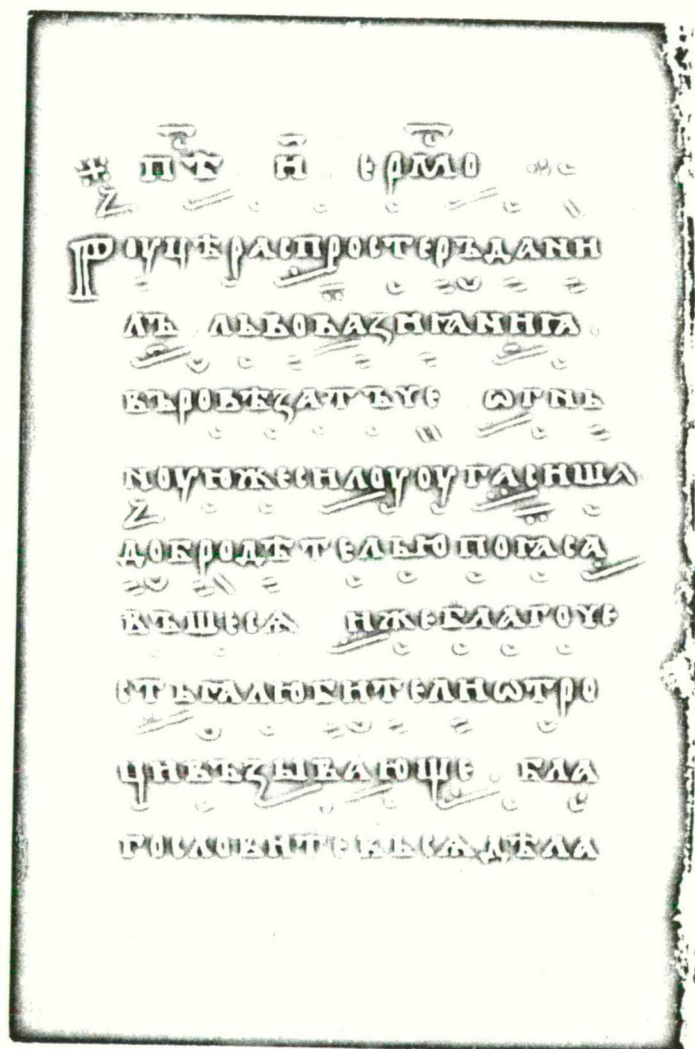 пѣ҃ н҃ ерм҃о
Роуцѣраспростеръдани
лъ львовазиꙗниꙗ
въровѣзатъче ѡгнь
ноуюжесилоуоугасиша
добродѣтельюпоꙗса
въшесѧ ижеблагоче
стьꙗлюбителиѡтро
цивъзывающе бла
гословитевьсѧдѣла